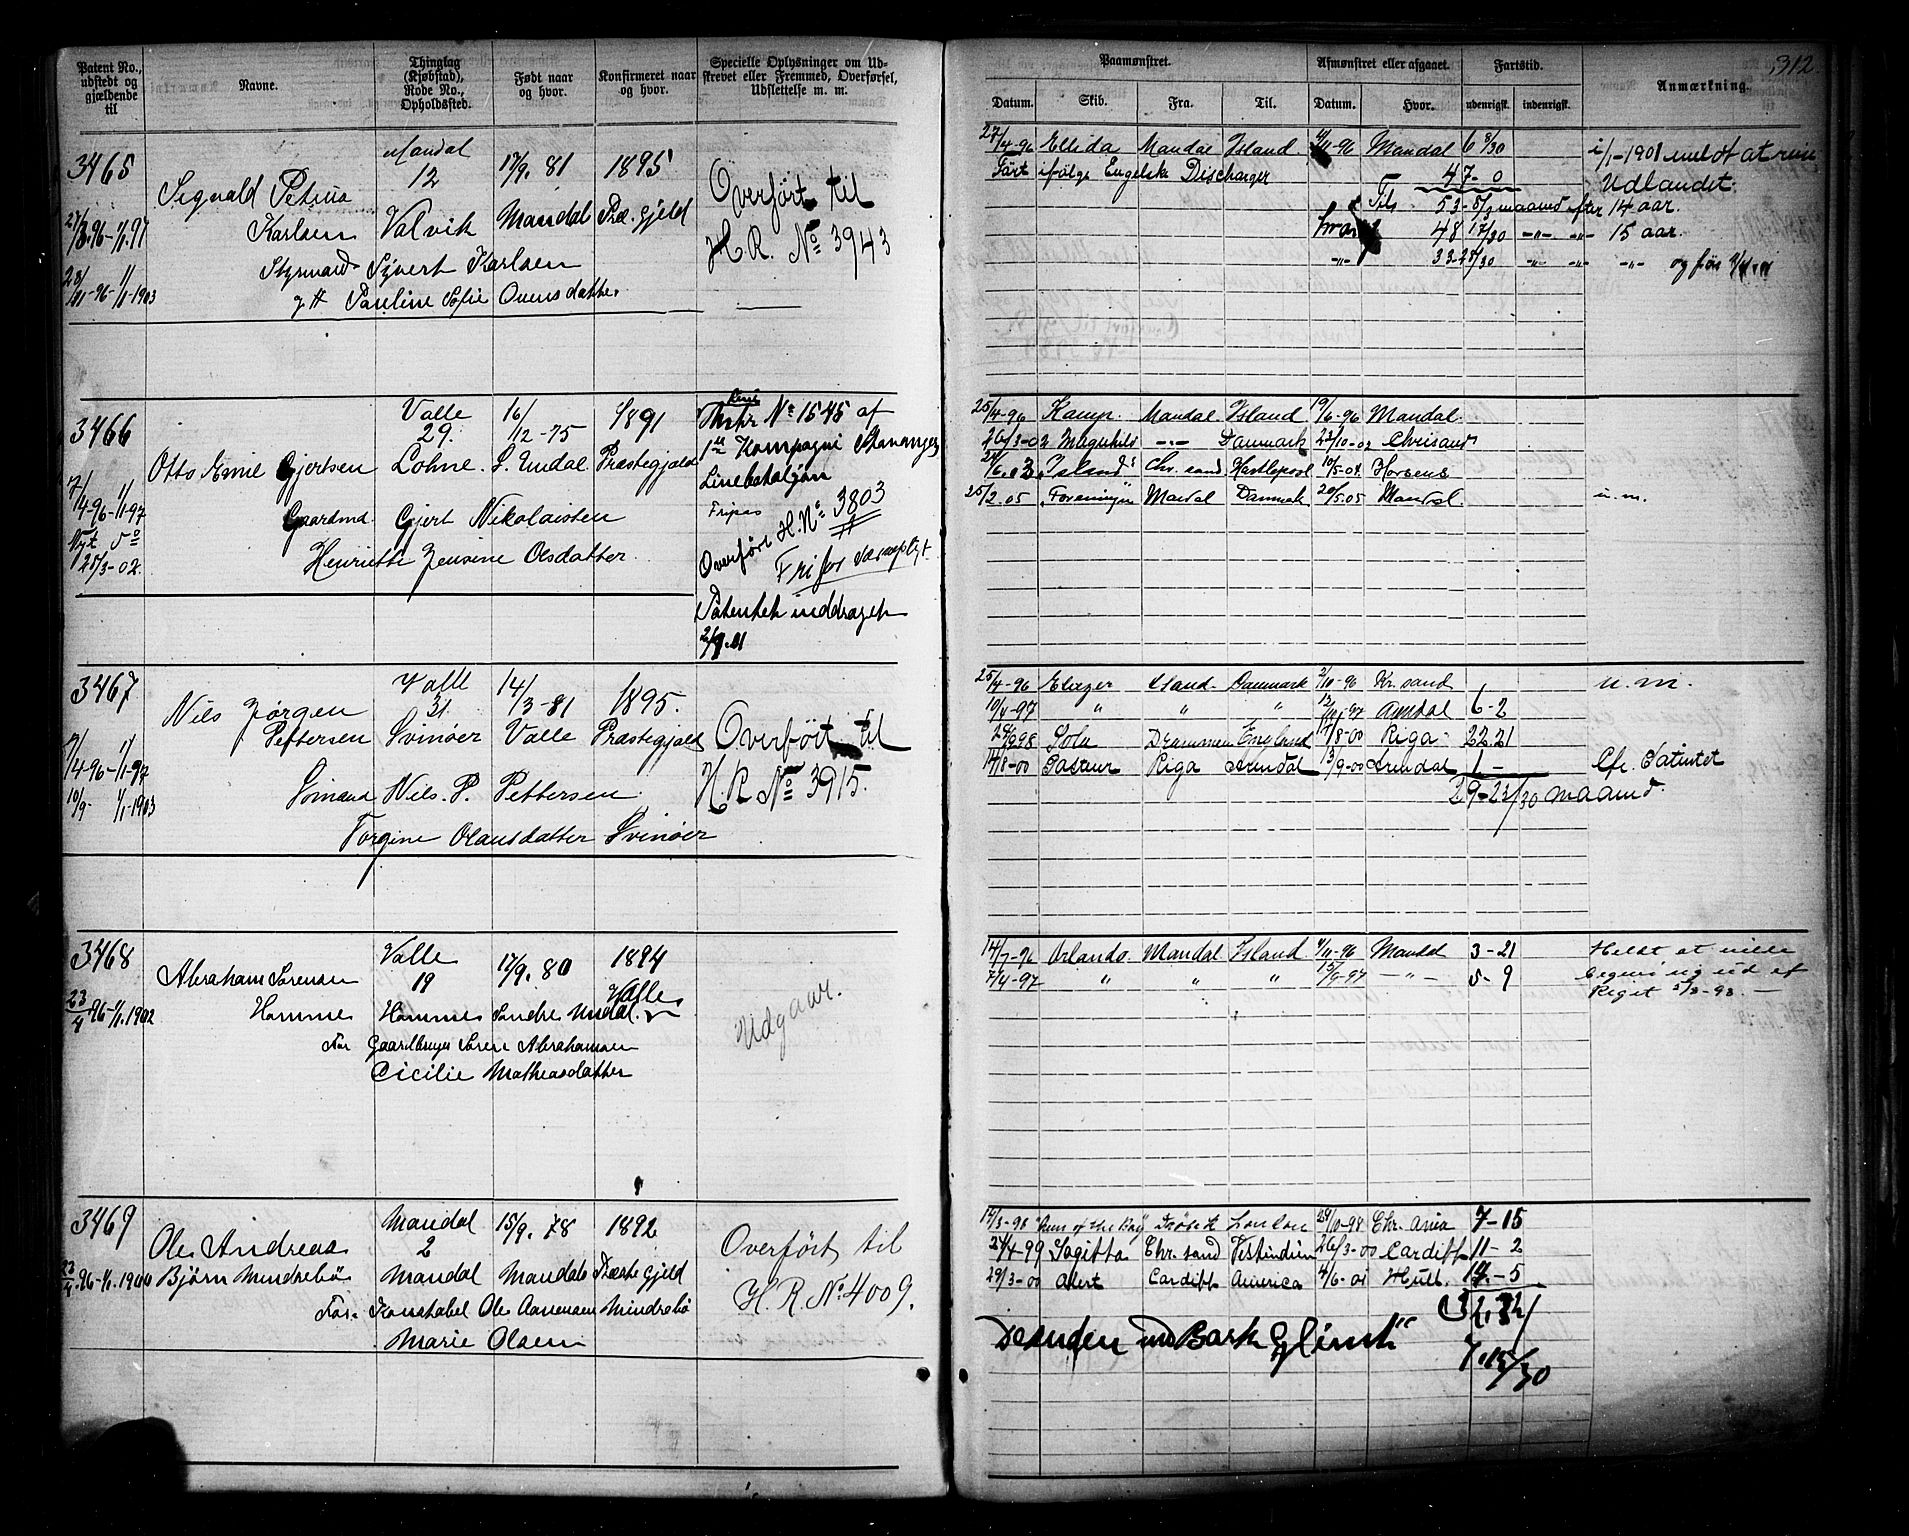 312.
Patent No., udstedt og gjældende til
Navne.
Thinglag (Kjøbstad), Rode No., Opholdssted.
Født naar og hvor.
Konfirmeret naar og hvor.
Specielle Oplysninger om Udskrevet eller Fremmed, Overførsel, Udslettelse m. m.
Paamønstret.
Afmønstret eller afgaaet.
Fartstid.
Anmærkning.
Datum. Skib. Fra. Til. Datum. Hvor. udenrigsk. indenrigsk.
3465
Mandal 17/9. 81 1895
12
Sigvald Petrus
Karlsen Valvik Mandal Præ. gjeld
27/3.96-1/1.97
Styrmand Sivert Karlsen
-96-1/1-1903
g H Pauline Sofie Ovensdatter
Overført til
H. R. No 3943
27/4-96 Ellida Mandal Island -96 Mandal 6 8/30
Ført ifølge Engelsk Discharger 47-0
Tils 53-8/30 maaned efter 14 aar.
hvoraf 48 17/30 -"- -"- 15 aar.
-"- 33- -"- -"- -"- og før
1/1-1901 meldt at
Udlandet.
3466
Valle 16/12-75 1891
29.
Otto Emil Gjertsen Lohne. S. Undal Præstegjeld
7/4-96-1/1-97
Gaardmd. Gjert Nikolaisen
Nyt
25/3-02.
Henriette Jensine Olsdatter
No 1545 af
1ste Kompagni Stavanger
Linebataljon
Fripas
Overført H. No 3803
Fri for værnepligt.
Patentet inddraget
25/4-96 Kamp. Mandal Island 19/6-96 Mandal.
26/3-02 Magnhild -"- Danmark 10-02 Chrisand
6.03 Island Chr. sand Hartlepool 10/5-04 Horsens
25/2.05 Foreningen Mandal Danmark 20/5.05 Mandal u. m.
3467
Valle 14/3-81 1895.
31.
Nils Jørgen
Pettersen Svinøer Valle Præstegjeld
7/4-96-1/1-97
10/9- 1/1-1903
Sømand Nils. P. Pettersen.
Torgine Olausdatter Svinøer
Overført til
H. R No 3915.
25/4-96 Elieser Island. Danmark 2/10-96 Kr. sand u. m.
10/4-97 " " " -97 Arendal 6-2
98 Sole Drammen England 17/8-00 Riga 22.21
17/8-00 Pasteur Riga Arendal 13/9-00 Arendal 1 - Cfr. Patentet
29-23/30 maaned.
3468
Valle 17/9. 80 1894
19
Abraham Sørensen
Valle
Homme Homme Søndre Undal.
23/4 96-1/1.1902
Far Gaardbruger Søren Abrahamsen
Cicilie Mathiasdatter
Udgaar.
14/7-96 Orlando Mandal Island -96 Mandal 3-21
7/4-97 " " " 15/9-97 -"- 5-9
Meldt at ville
begive sig ud af
Riget 5/3-98.-
3469
Mandal 15/9. 78 1892
2
Ole Andreas
Bjørn Mindrebø Mandal Mandals Præstegjeld
23/4.96-1/1.1900
Far. Konstabel Ole Aanensen Mindrebø
Marie Olsen
Overført til
H. R. No. 4009.
14/3-98 "Queen of the Bay" Drøbak London 29/10-98 Chr. ania 7-15
24/4-99 Sagitta Chr. sand Vestindien 26/3-00 Cardiff 11-2
29/3-00 Alert Cardiff America 4/6-01 Hull 14-5
Desuden med Bark "Glimt"
7.15/30